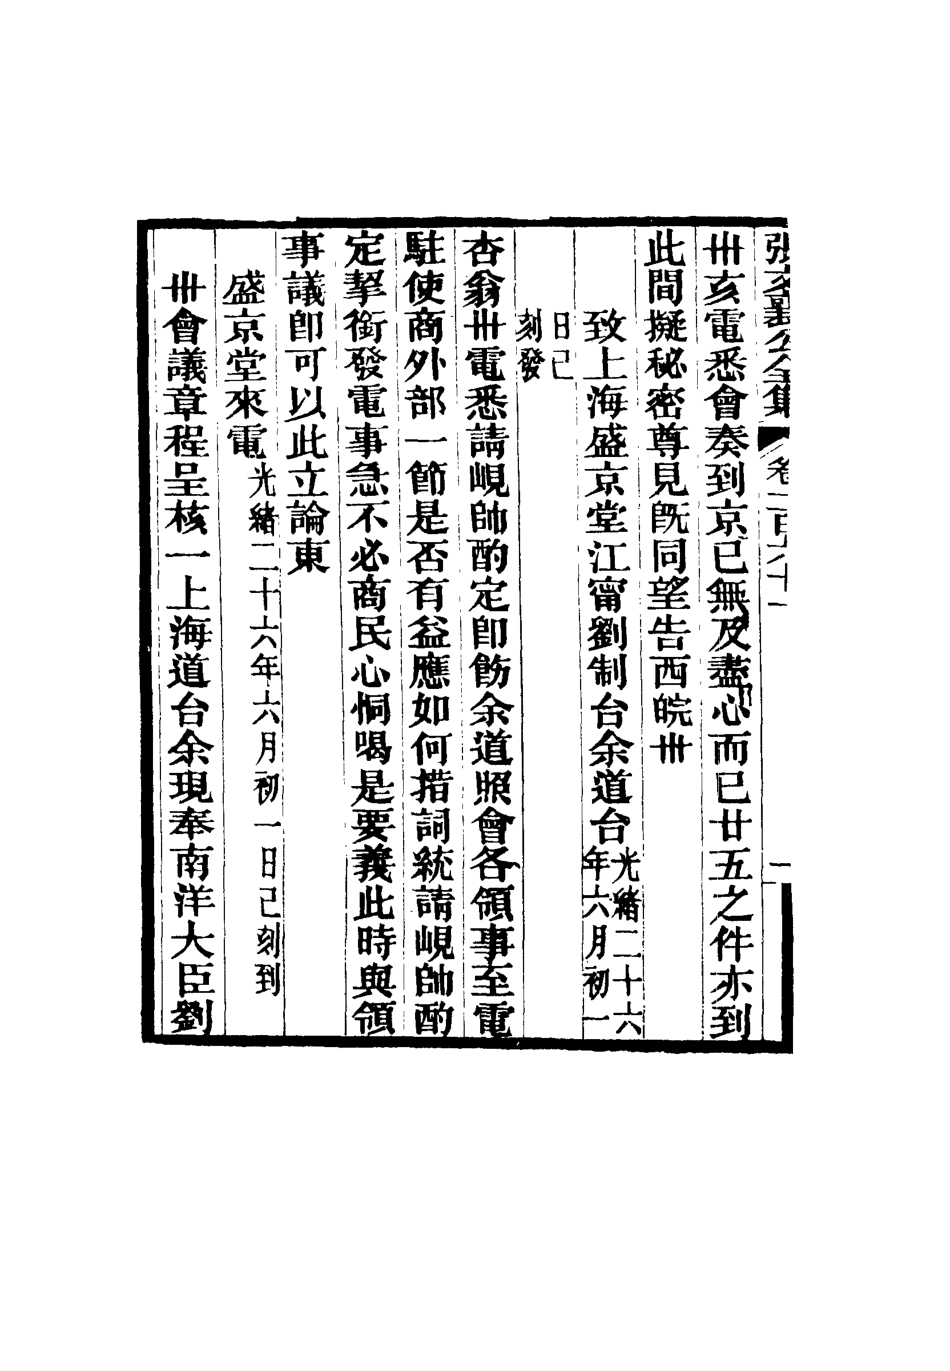 張文襄公全集 卷一百六十一 一
卅亥電悉會奏到京已無及盡心而已廿五之件亦到
此間擬秘密尊見既同望告西皖卅
致上海盛京堂江甯劉制台余道台光緒二十六年六月初一
日巳刻發
杏翁卅電悉請峴帥酌定卽飭余道照會各領事至電
駐使商外部一節是否有益應如何措詞統請峴帥酌
定挈銜發電事急不必商民心恫喝是要義此時與領
事議卽可以此立論東
盛京堂來電光緒二十六年六月初一日巳刻到
卅會議章程呈核一上海道台余現奉南洋大臣劉